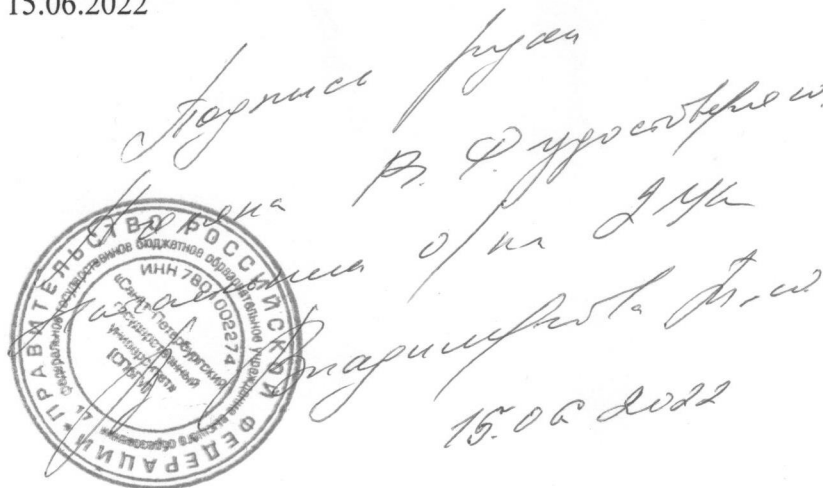 15.06.2022
Подпись руки
В. Ф. удостоверяю
Владимирова
15.06 2022
ПРАВИТЕЛЬСТВО РОССИЙСКОЙ ФЕДЕРАЦИИ
Федеральное государственное бюджетное образовательное учреждение высшего образования
ИНН 7801002274
«Санкт-Петербургский
государственный
университет»
(СПбГУ)